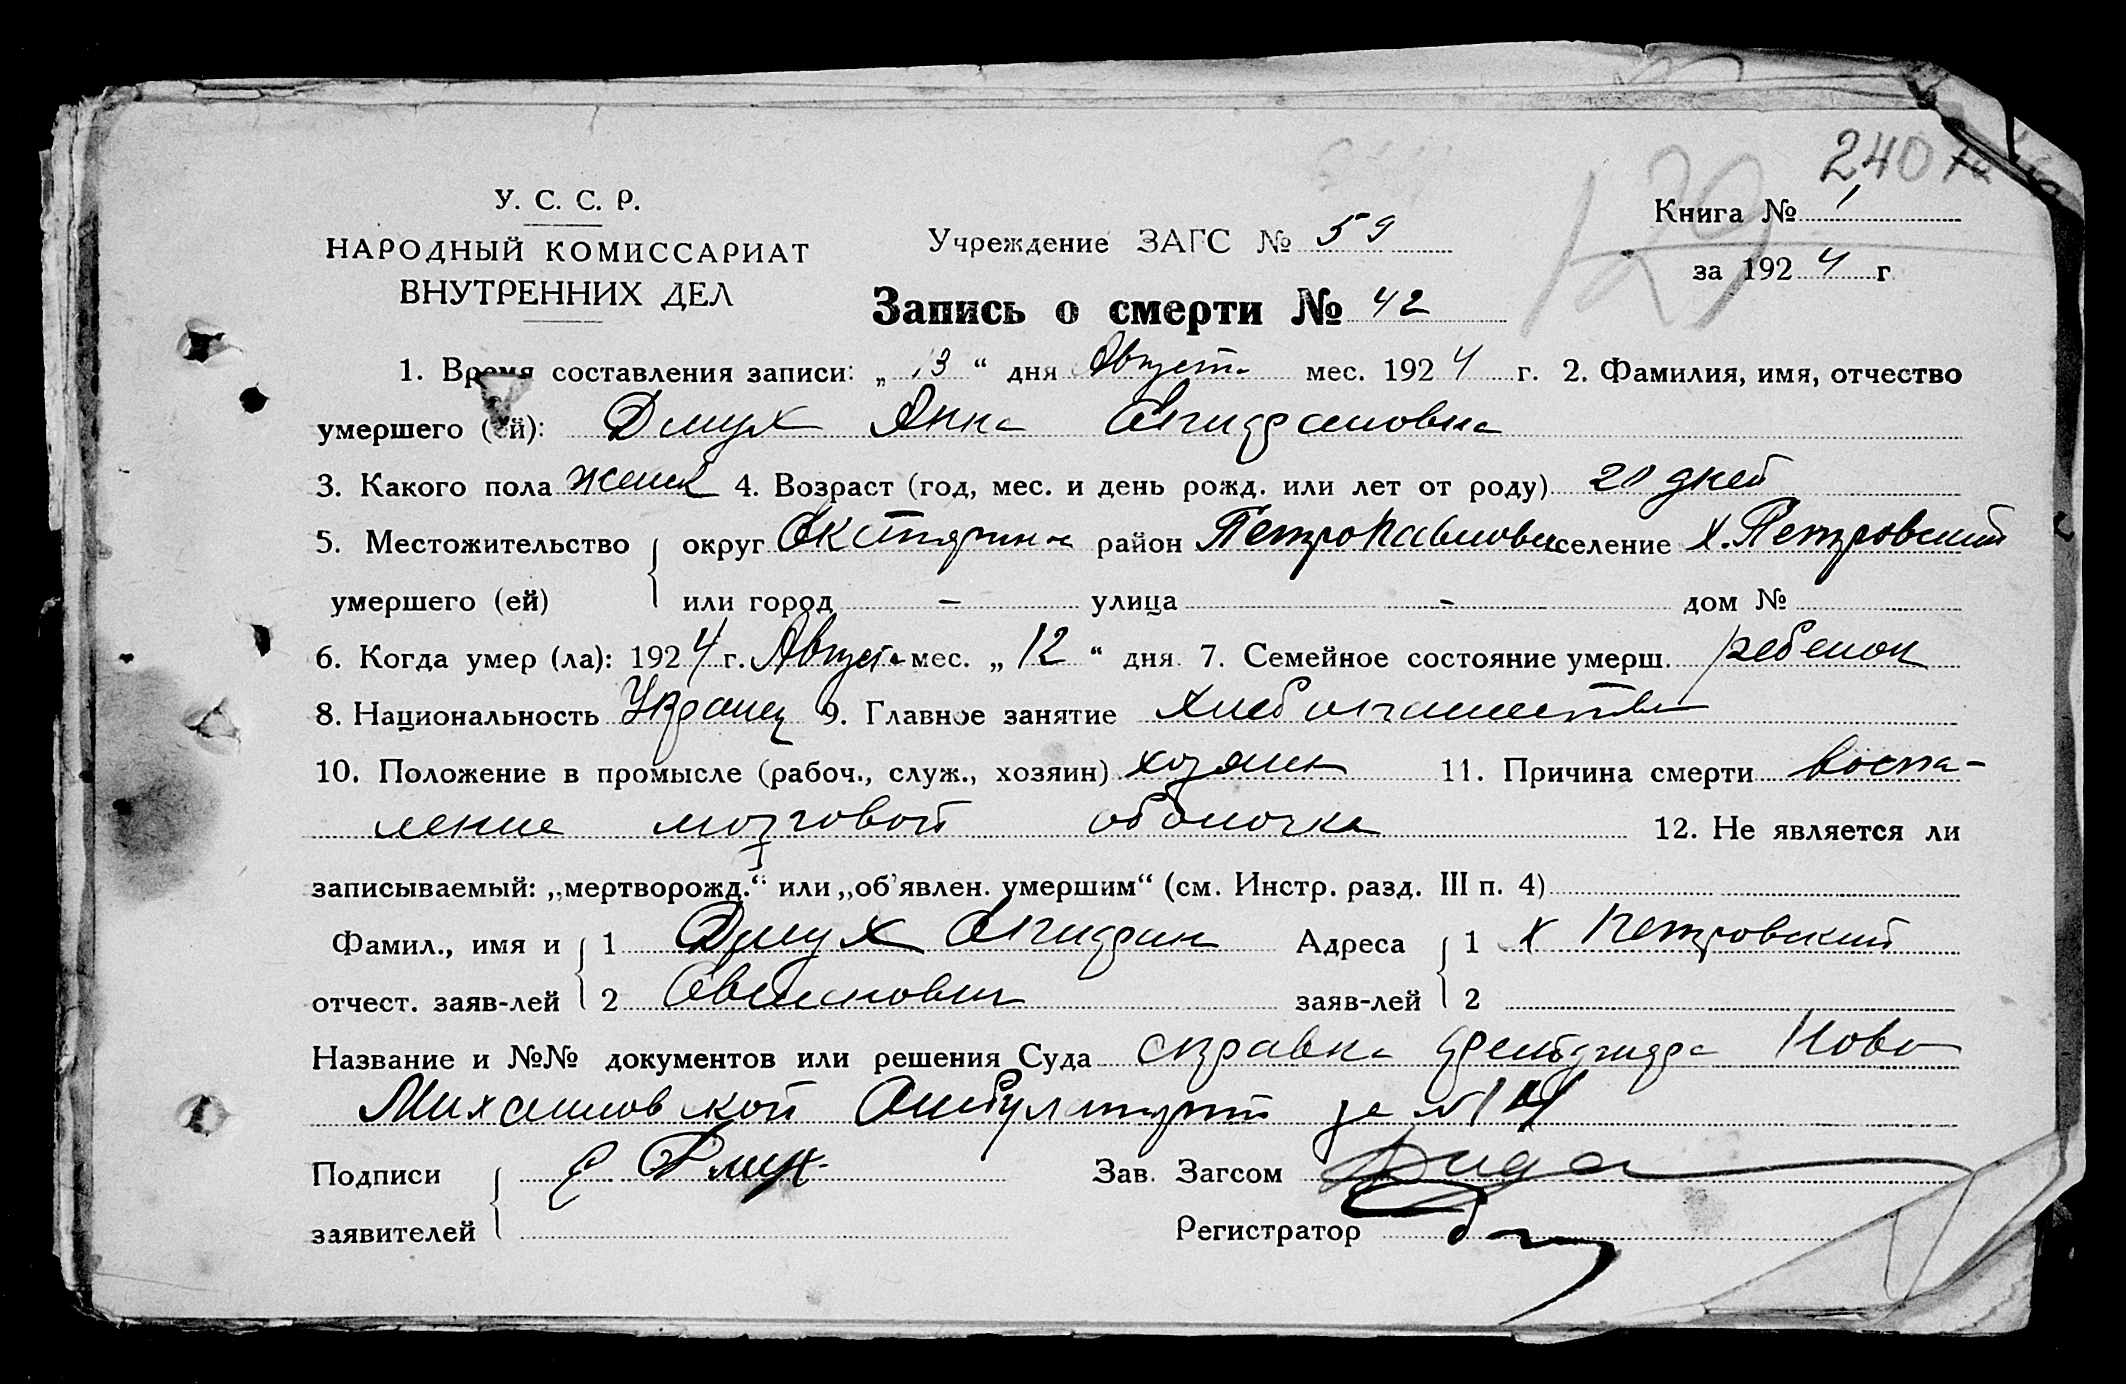 240
129
У. С. С. Р.
НАРОДНЫЙ КОМИССАРИАТ
ВНУТРЕННИХ ДЕЛ
Учреждение ЗАГС № 59
Книга № 1
за 1924 г.
Запись о смерти № 42
1. Время составления записи: „ 13 “ дня Августа мес. 1924 г. 2. Фамилия, имя, отчество
умершего (ей): Дмух Анна
3. Какого пола женск 4. Возраст (год, мес. и день рожд. или лет от роду) 20 дней
5. Местожительство округ Екатерин район Петропавловск селение х. Петровский
умершего (ей) или город – улица – дом №
6. Когда умер (ла): 1924 г. Августа мес. „ 12 “ дня 7. Семейное состояние умерш. ребенок
8. Национальность Украинец 9. Главное занятие хлебопашество
10. Положение в промысле (рабоч., служ., хозяин) хозяин 11. Причина смерти воспа-
ление мозговой оболочки 12. Не является ли
записываемый: „мертворожд.“ или „об’явлен. умершим“ (см. Инстр. разд. III п. 4)
Фамил., имя и 1 Дмух Адреса 1 х Петровский
отчест. заяв-лей 2 заяв-лей 2
Название и №№ документов или решения Суда справка Ново
Михайловской Амбулатории за №
Подписи Е Дмух Зав. Загсом
заявителей Регистратор